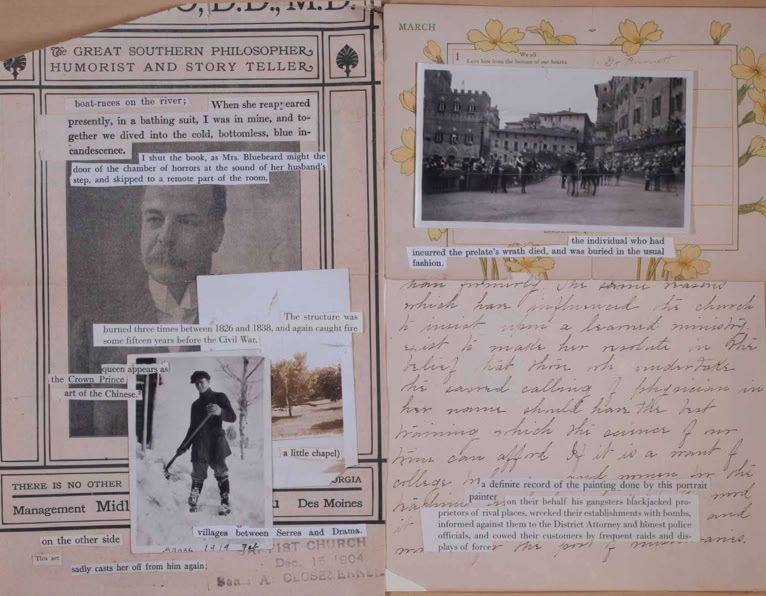 O, D.D., M.D.
The GREAT SOUTHERN PHILOSOPHER,
HUMORIST AND STORY TELLER
boat-races on the river; When she reappeared
presently, in a bathing suit, I was in mine, and to-
gether we dived into the cold, bottomless, blue in-
candescence.
I shut the book, as Mrs. Bluebeard might the
door of the chamber of horrors at the sound of her husband's
step, and skipped to a remote part of the room,
The structure was
burned three times between 1826 and 1838, and again caught fire
some fifteen years before the Civil War,
queen appears as
the Crown Prince
art of the Chinese.
a little chapel)
THERE IS NO OTHER
ORGIA
Management Midl
Des Moines
villages between Serres and Drama.
on the other side
This art
sadly casts her off from him again;
1919
IST CHURCH
Dec. 15 1904
MARCH
1
We all
Love him from the bottom of our hearts.
Dr
the individual who had
incurred the prelate's wrath died, and was buried in the usual
fashion.
han formerly the same reasons
which have influenced the church
to insist upon a learned ministry
exist to make her resolute in the
belief that those who undertake
the sacred calling of physician in
her name should have the best
training which the science of our
time can afford. If it is a want of
college
a definite record of the painting done by this portrait
painter
on their behalf his gangsters blackjacked pro-
prietors of rival places, wrecked their establishments with bombs,
informed against them to the District Attorney and honest police
officials, and cowed their customers by frequent raids and dis-
plays of force
and
the